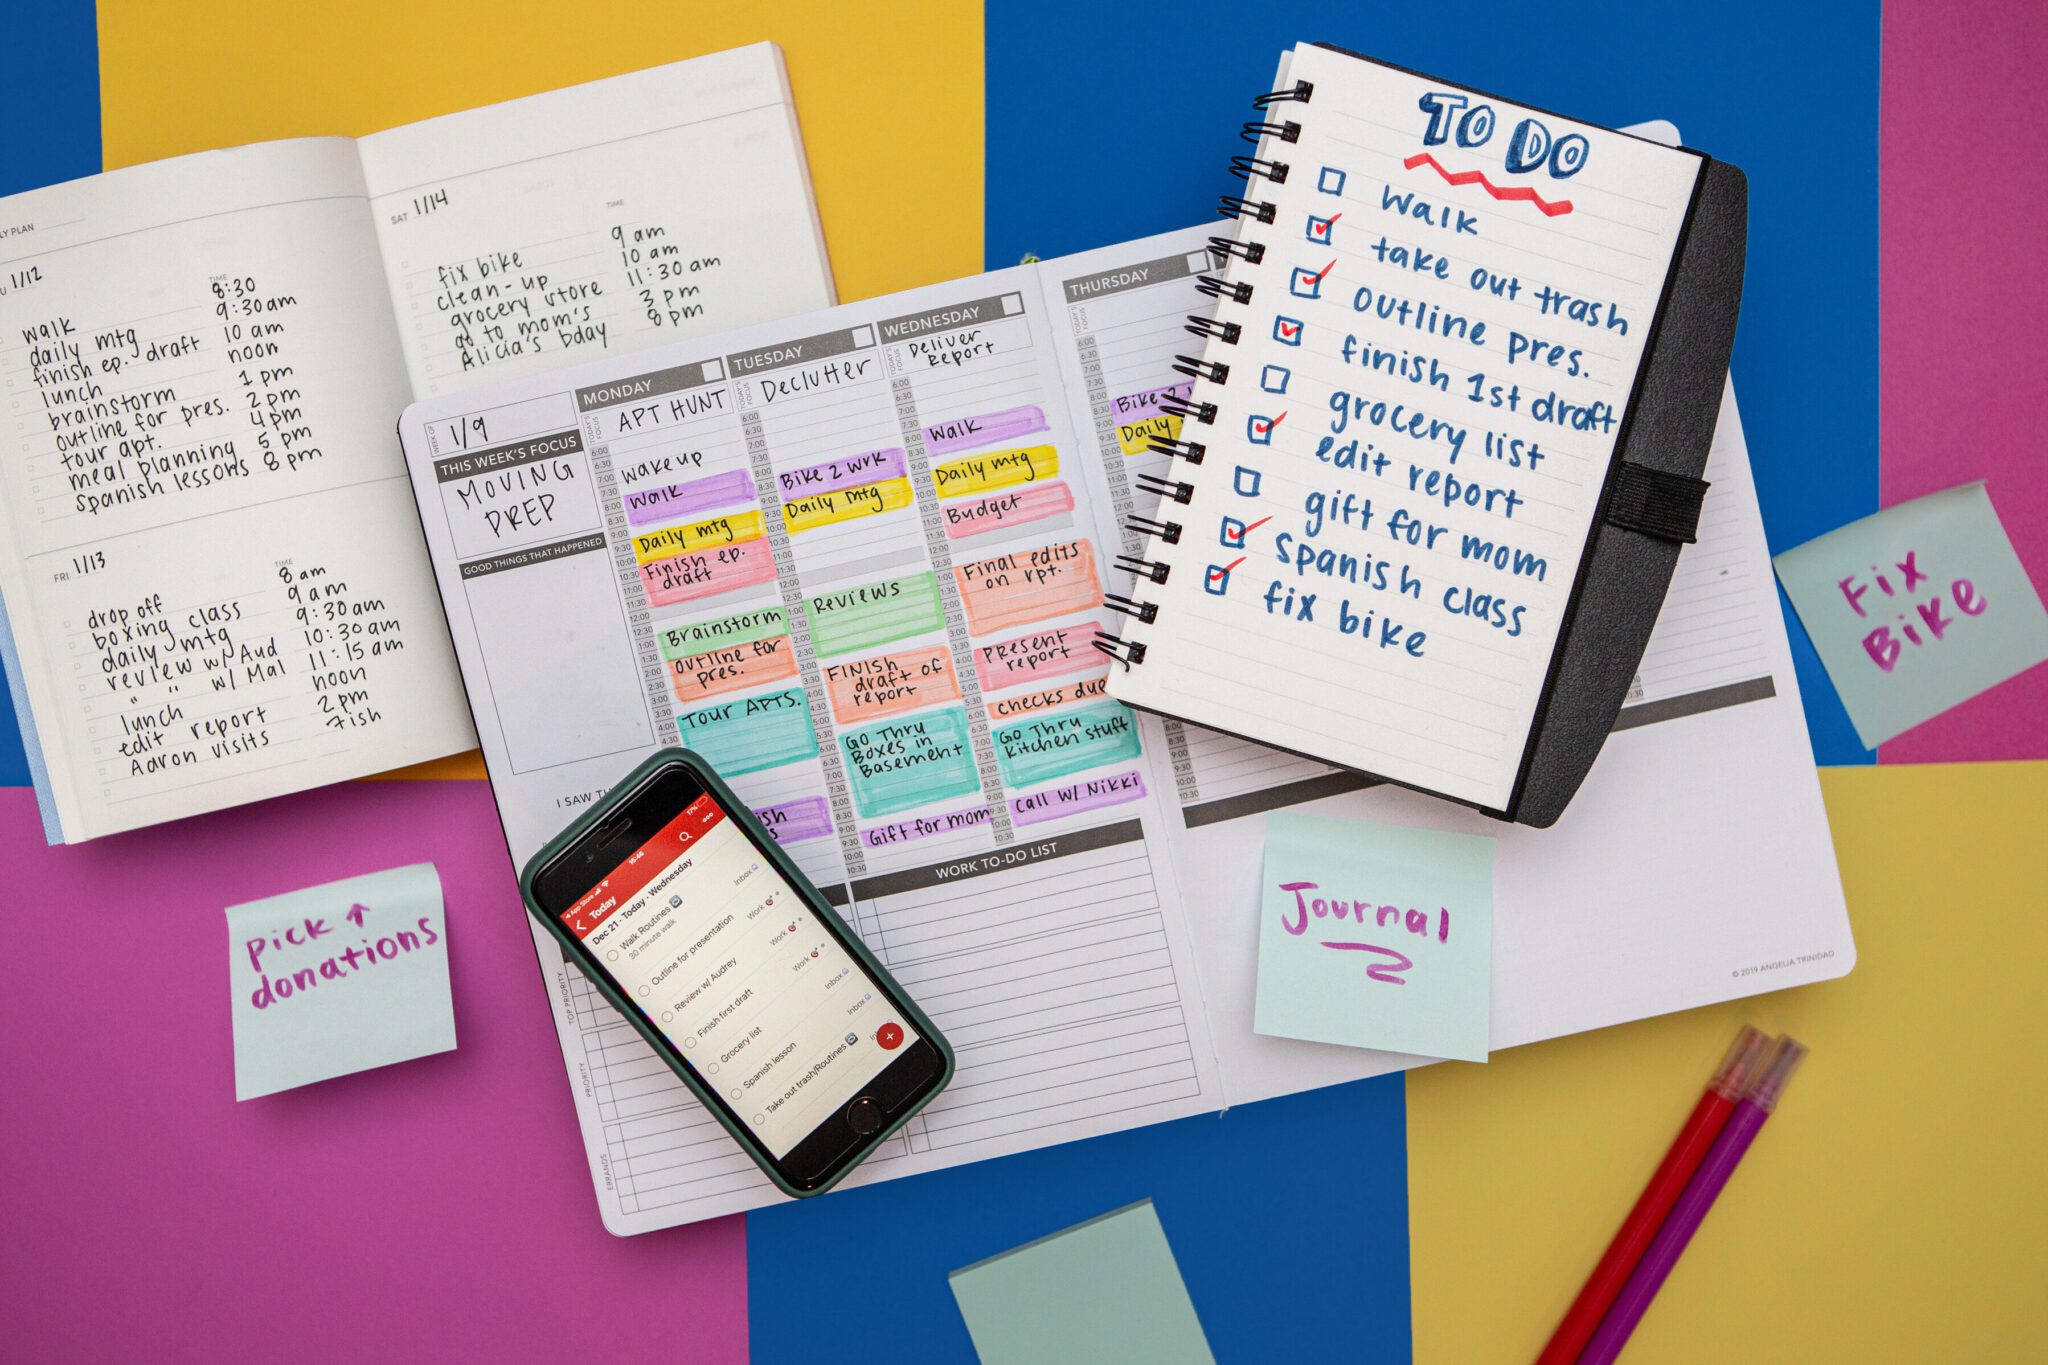 LY PLAN
1/12
TIME
walk 8:30
daily mtg 9:30am
finish ep. draft 10 am
lunch noon
brainstorm 1 pm
outline for pres. 2 pm
tour apt. 4 pm
meal planning 5 pm
spanish lessons 8 pm
FRI 1/13
TIME
drop off 8 am
boxing class 9 am
daily mtg 9:30 am
review w/ Aud 10:30 am
" w/ Mal 11:15 am
lunch noon
edit report 2 pm
Aaron visits 7ish
SAT 1/14
TIME
fix bike 9 am
clean-up 10 am
grocery store 11:30 am
go to mom's 3 pm
Alicia's bday 8 pm
WEEK OF 1/9
THIS WEEK'S FOCUS
MOVING
PREP
GOOD THINGS THAT HAPPENED
I SAW TH
MONDAY
TODAY'S FOCUS
APT HUNT
wake up
Walk
Daily mtg
Finish ep.
draft
Brainstorm
outline for
pres.
Tour APTS.
ish
s
TUESDAY
TODAY'S FOCUS
Declutter
Bike 2 wrk
Daily mtg
Reviews
FINISH
draft of
report
GO Thru
Boxes in
Basement
Gift for mom
WEDNESDAY
TODAY'S FOCUS
Deliver
Report
Walk
Daily mtg
Budget
Final edits
on rpt.
Present
report
checks due
GO Thru
Kitchen stuff
call w/ Nikki
THURSDAY
TODAY'S FOCUS
Bike 2
Daily
WORK TO-DO LIST
TOP PRIORITY
PRIORITY
ERRANDS
© 2019 ANGELIA TRINIDAD
TO DO
walk
take out trash
outline pres.
finish 1st draft
grocery list
edit report
gift for mom
spanish class
fix bike
Fix
Bike
Pick ↑
donations
Journal
App Store 15:46 17%
Today
Dec 21 · Today · Wednesday
Walk Routines Inbox
30 minute walk
Outline for presentation Work
Review w/ Audrey Work
Finish first draft Work
Grocery list Inbox
Spanish lesson Inbox
Take out trash/Routines In
+